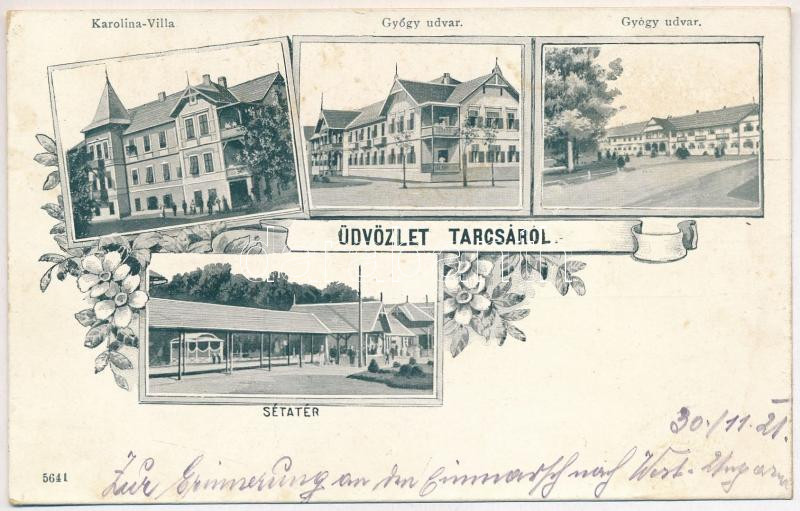 Karolina-Villa
Gyógy udvar.
Gyógy udvar.
ÜDVÖZLET TARCSÁRÓL.
SÉTATÉR
30./11.21.
5641
Zur Erinnerung an den Einmarsch nach West-Ungarn